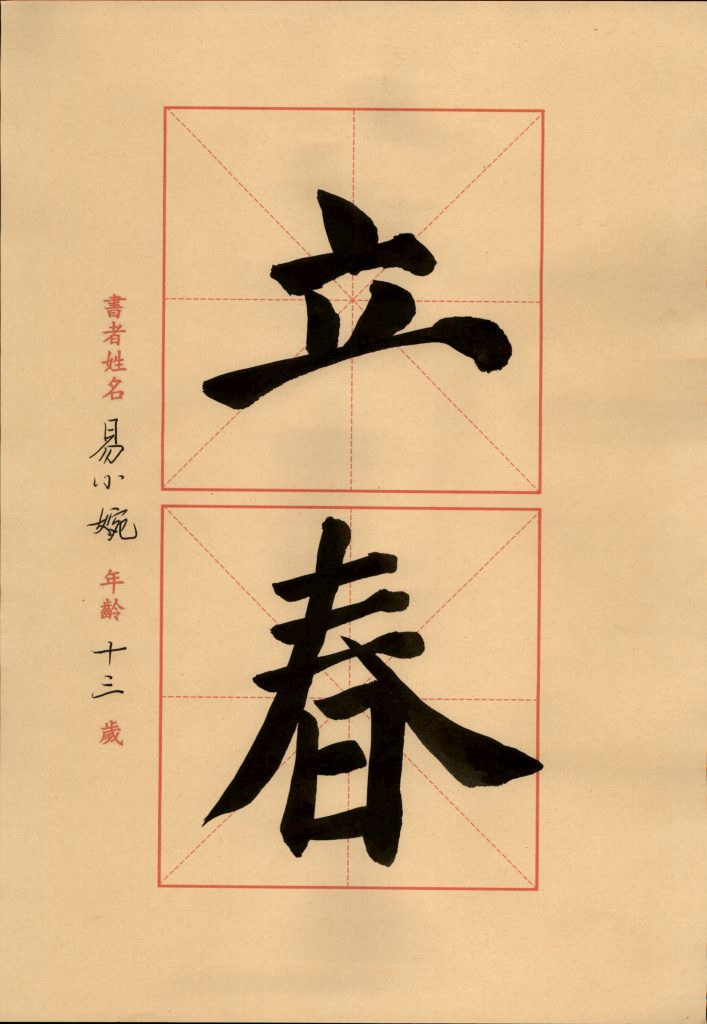 立春
書者姓名 易小婉 年齡 十三 歲